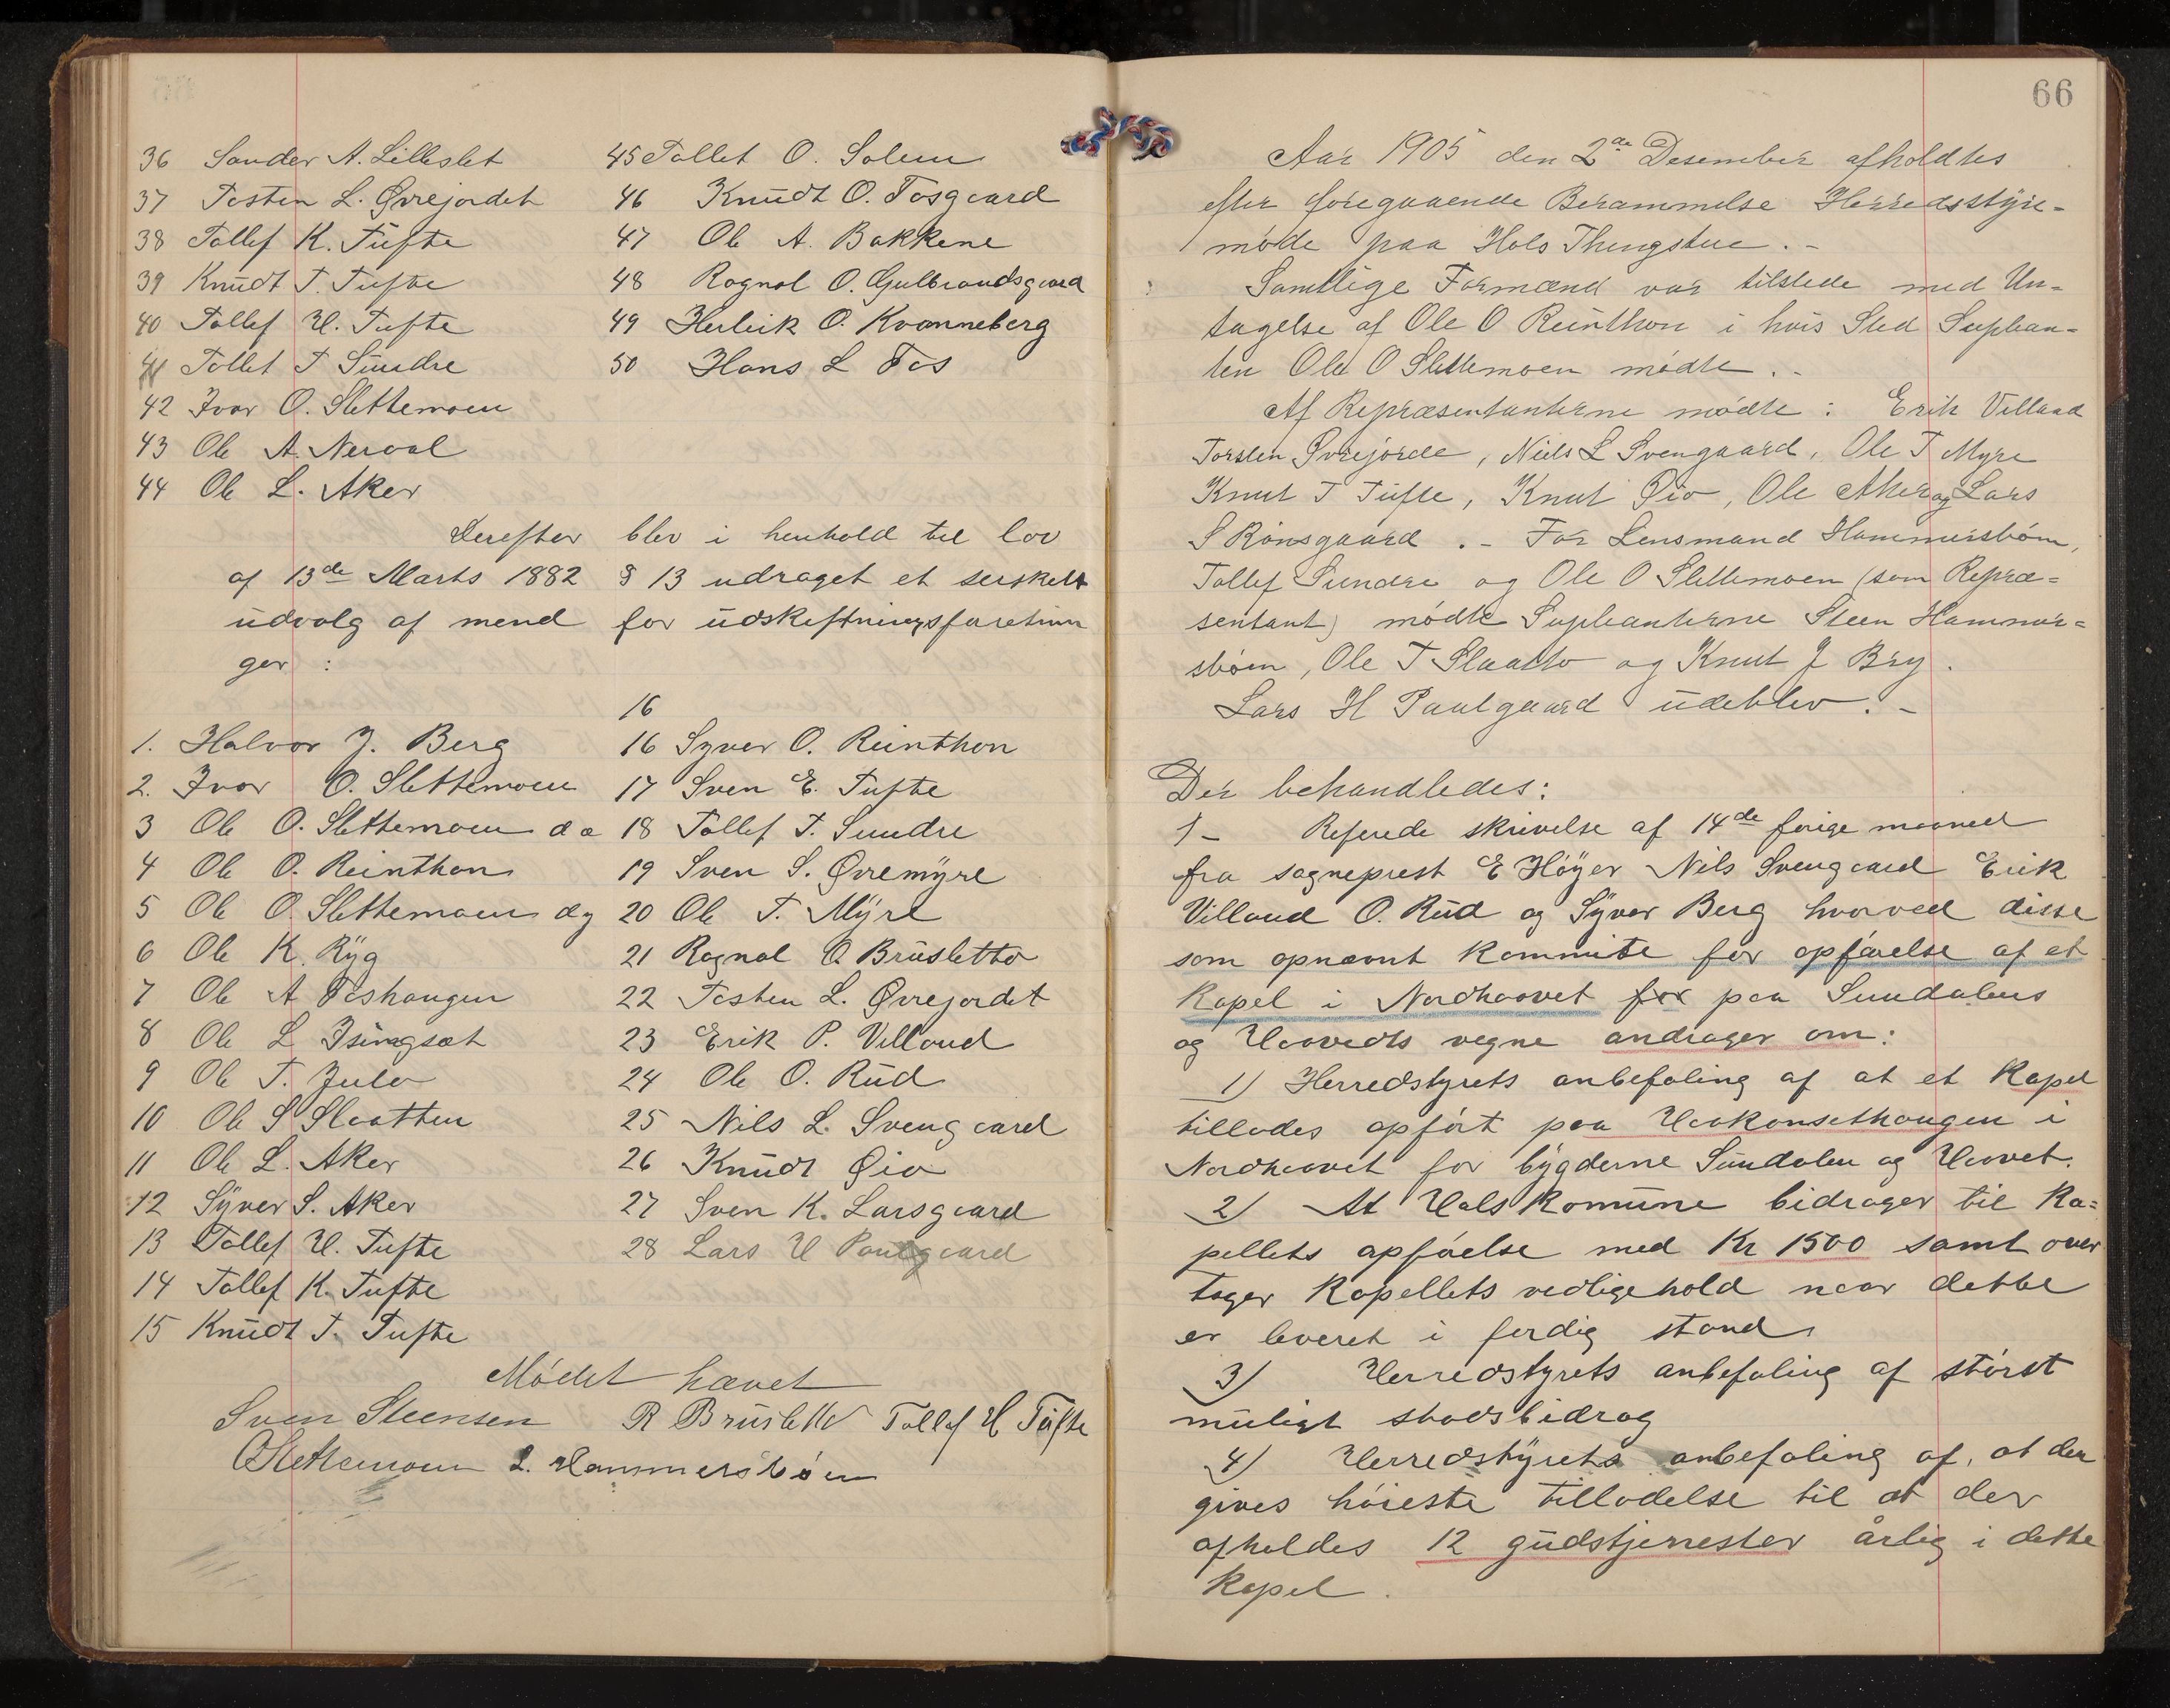 36 Sander A. Lilleslet
37 Tosten L. Øvrejordet
38 Tollef K. Tufte
39 Knudt T. Tufte
40 Tollef H. Tufte
41 Tollef T Sundre
42 Ivar O. Slettemoen
43 Ole A. Neraal
44 Ole L. Aker
45 Tollef O. Solem
46 Knudt O. Fosgaard
47 Ole A. Bakkene
48 Ragnal O. Gulbrandsgaard
49 Herleik O. Kvanneberg
50 Hans L Fos
Derefter blev i henhold til lov
af 13de Marts 1882 § 13 udraget et serskelt
udvalg af mend for udskiftningsforetnin
ger :
1. Halvor J. Berg
2. Ivar O. Slettemoen
3 Ole O. Slettemoen d æ
4 Ole O. Reinthon
5 Ole O. Slettemoen dy
6 Ole K. Ryg
7 Ole A Foshaugen
8 Ole L Isingsæt
9 Ole T. Julo
10 Ole S Slaatten
11 Ole L. Aker
12 Syver S. Aker
13 Tollef H. Tufte
14 Tollef K. Tufte
15 Knudt T. Tufte
16
16 Syver O. Reinthon
17 Sven E. Tufte
18 Tollef T. Sundre
19 Sven S. Øvremyre
20 Ole T. Myre
21 Ragnal O Brusletto
22 Tosten L. Øvrejordet
23 Erik P. Villand
24 Ole O. Rud
25 Nils L. Svengaard
26 Knudt Øio
27 Sven K. Larsgaard
28 Lars H Paulgaard
Mødet hævet
Sven Steensen R Brusletto Tollef H Tufte
O Slettemoen L. Hammersbøen
66
Aar 1905 den 2de Desember afholdtes
efter foregaaende Berammelse Herredsstyre-
møde paa Hols Thingstue. -
Samtlige Formænd var tilstede med Un-
tagelse af Ole O Reinthon i hvis Sted Suplean-
ten Ole O Slettemoen mødte. -
Af Repræsentanterne mødte : Erik Villand
Torsten Øvrejorde, Niels L Svengaard, Ole T Myre
Knut T Tufte, Knut Øio, Ole Aker og Lars
S Rønsgaard. - For Lensmand Hammersbøen,
Tollef Sundre og Ole O Slettemoen (som Repræ-
sentant) mødte Supleanterne Steen Hammer-
sbøen, Ole T Slaatto og Knut J Bry.
Lars H Paulgaard udeblev. -
Der behandledes:
1 - Referede skrivelse af 14de forige maaned
fra sogneprest E Høyer Nils Svengaard Erik
Villand O. Rud og Syver Berg hvorved disse
som opnævnt kommite for opførelse af et
Kapel i Nordhaavet for paa Sundalens
og Haavets vegne andrager om:
1) Herredstyrets anbefaling af at et Kapel
tillades opført paa Haakonsethaugen i
Nordhaavet for bygderne Sundalen og Haavet.
2) At Hols Komune bidrager til Ka-
pellets opførelse med Kr 1500 samt over
tager Kapellets vedligehold naar dette
er leveret i ferdig stand
3) Herredstyrets anbefaling af størst
muligt stadsbidrag
4) Herredstyrets anbefaling af, at der
gives høieste tilladelse til at der
afholdes 12 gudstjenester årlig i dette
Kapel.